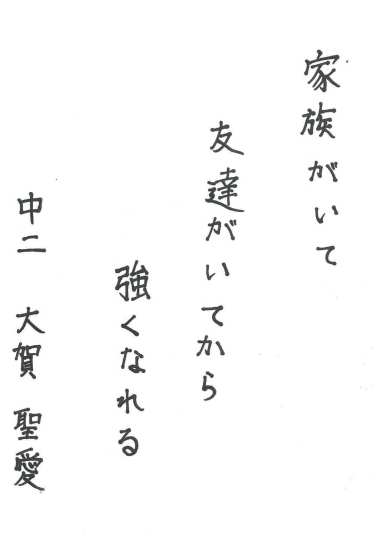 家族がいて
友達がいてから
強くなれる
中二 大賀 聖愛